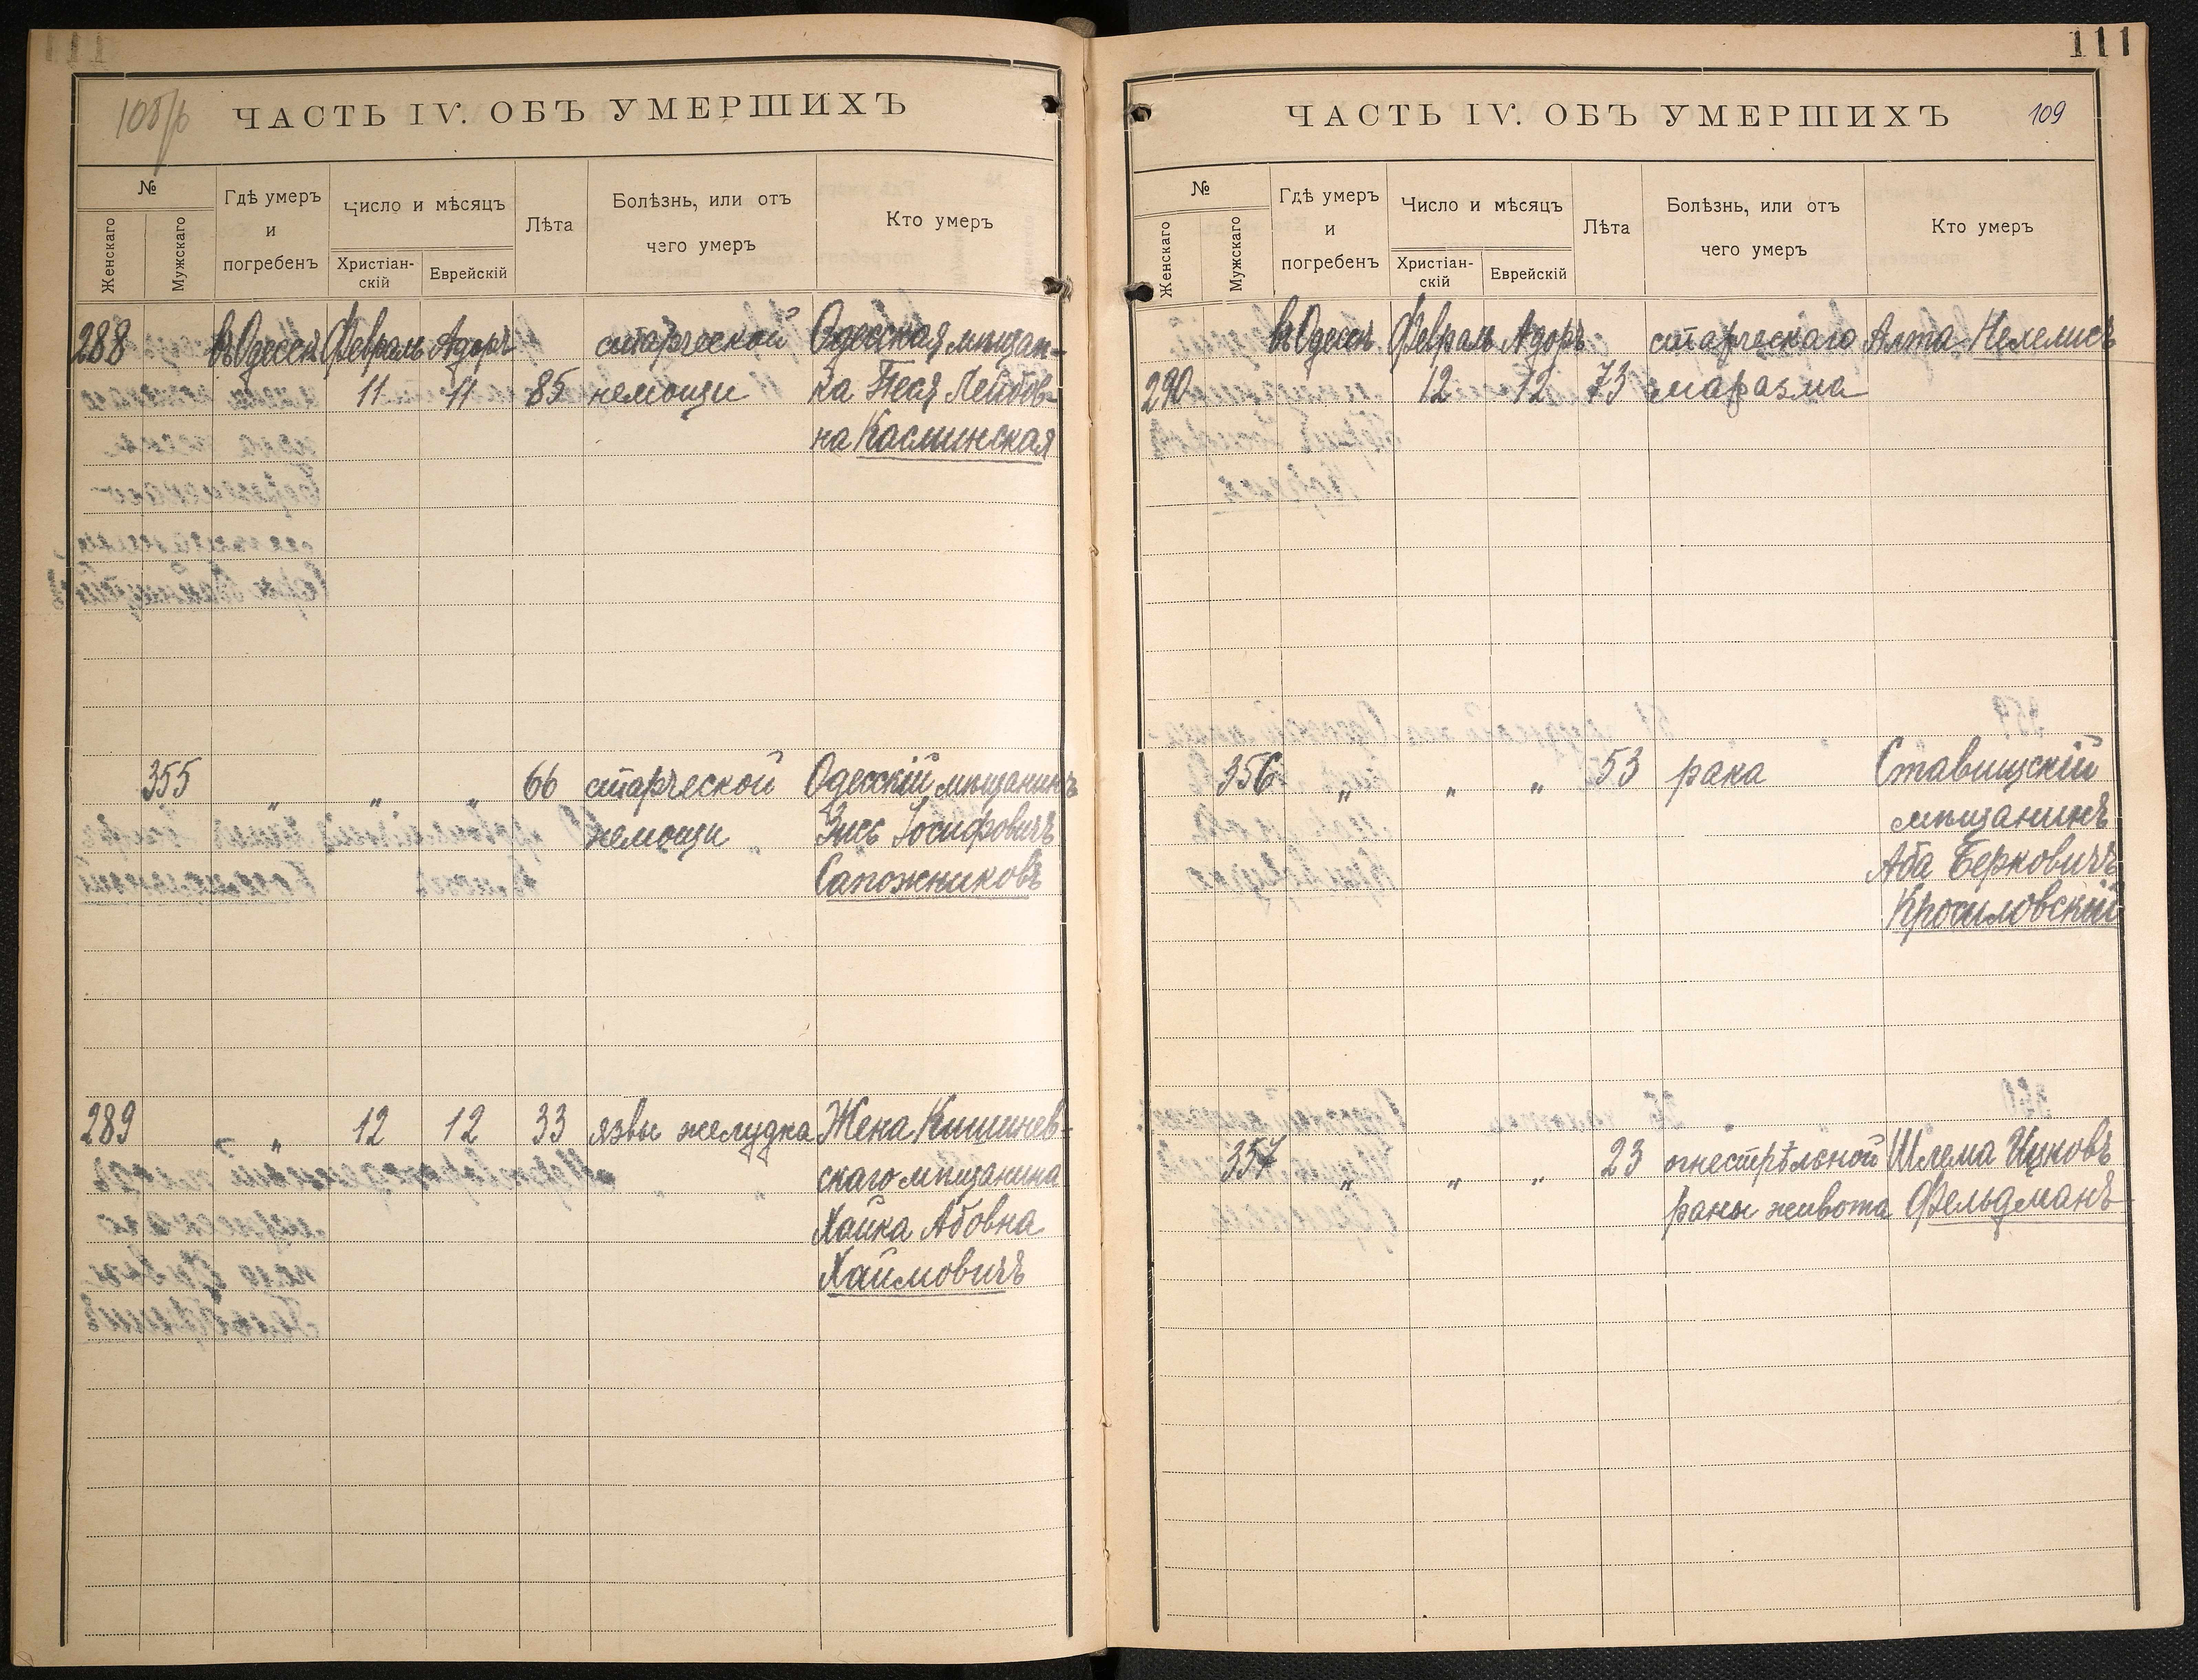 111
108/б
ЧАСТЬ IV. ОБЪ УМЕРШИХЪ
№
Женскаго
Мужскаго
Гдѣ умеръ
и
погребенъ
Число и мѣсяцъ
Христіан-
скій
Еврейскій
Лѣта
Болѣзнь, или отъ
чего умеръ
Кто умеръ
288 въ Одессѣ Февраль Адоръ старческой Одесская мѣщан-
11 11 85 немощи ка Песя Лейбов-
на Каслинская
355 " " " 66 старческой Одесскій мѣщанинъ
немощи Зись Іосифовичъ
Сапожниковъ
289 " " 12 12 33 язвы желудка Жена Кишинев-
скаго мѣщанина
Хайка Абовна
Хаймовичъ
111
ЧАСТЬ IV. ОБЪ УМЕРШИХЪ 109
№
Женскаго
Мужскаго
Гдѣ умеръ
и
погребенъ
Число и мѣсяцъ
Христіан-
скій
Еврейскій
Лѣта
Болѣзнь, или отъ
чего умеръ
Кто умеръ
въ Одессѣ Февраль Адоръ старческаго Алта Нелемисъ
290 12 12 73 маразма
356 " " " 53 рака Ставищскій
мѣщанинъ
Аба Берковичъ
Кросиловскій
357 " " " 23 огнестрѣльной Шлема Ицковъ
раны живота Фельдманъ